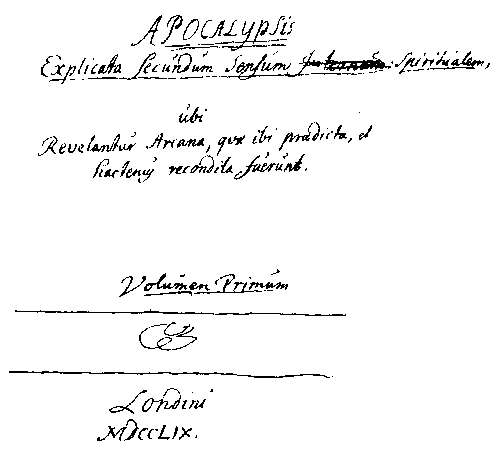 APOCALYPSIS
Explicata secundum sensum Internum Spiritualem,
ubi
Revelantur Arcana, quæ ibi prædicta, et
hactenus recondita fuerunt.
Volumen Primum
Londini
MDCCLIX.